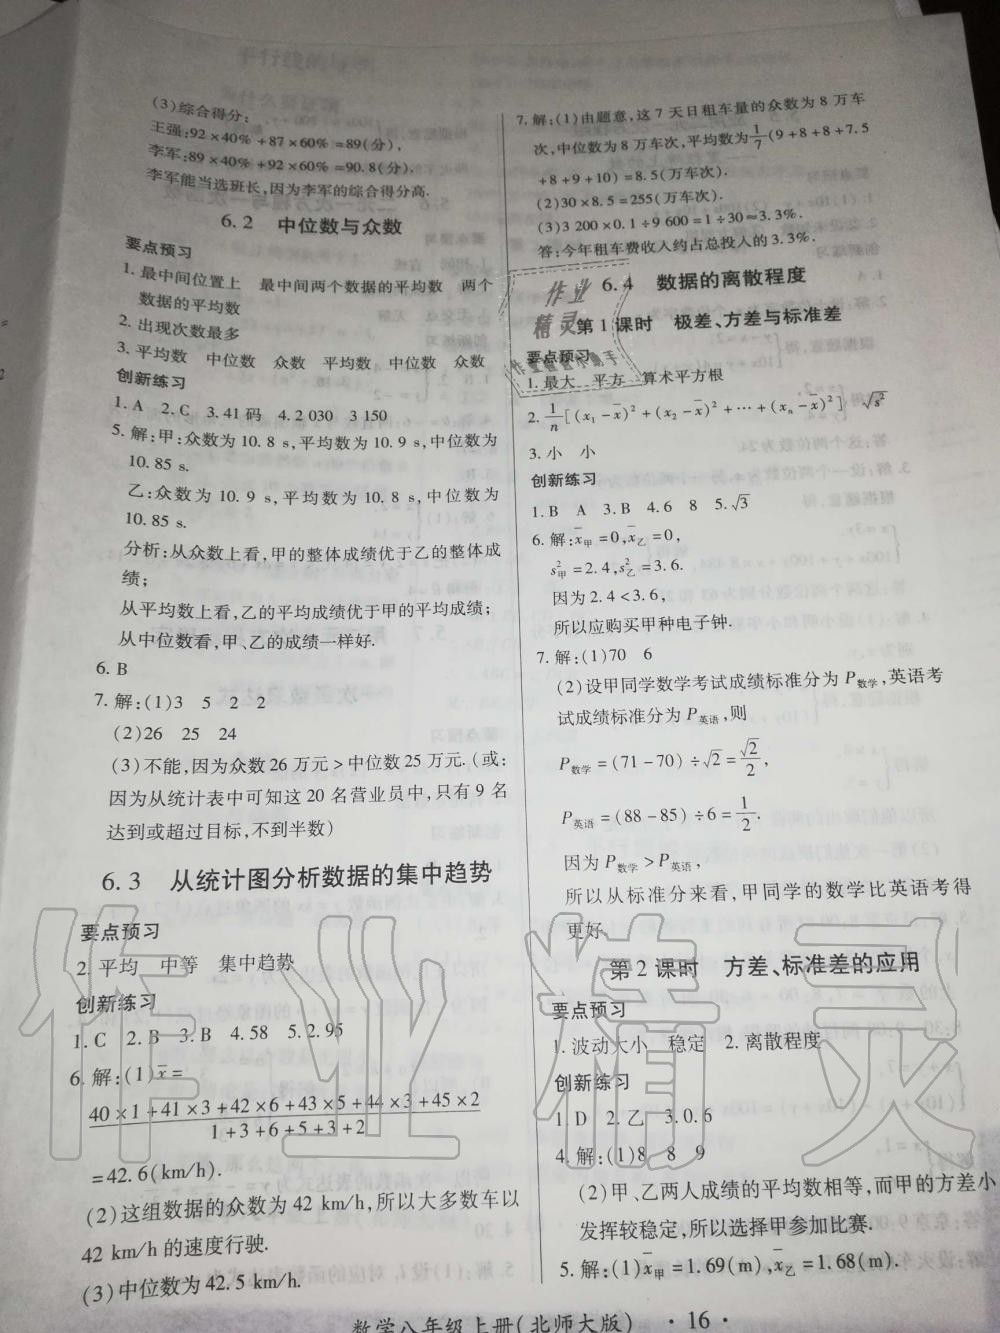 (3)综合得分:
王强:92×40%+87×60%=89(分),
李军:89×40%+92×60%=90.8(分).
李军能当选班长,因为李军的综合得分高.
6.2 中位数与众数
要点预习
1.最中间位置上 最中间两个数据的平均数 两个
数据的平均数
2.出现次数最多
3.平均数 中位数 众数 平均数 中位数 众数
创新练习
1.A 2.C 3.41码 4.2 030 3 150
5.解:甲:众数为10.8 s,平均数为10.9 s,中位数为
10.85 s.
乙:众数为10.9 s,平均数为10.8 s,中位数为
10.85 s.
分析:从众数上看,甲的整体成绩优于乙的整体成
绩;
从平均数上看,乙的平均成绩优于甲的平均成绩;
从中位数看,甲、乙的成绩一样好.
6.B
7.解:(1)3 5 2 2
(2)26 25 24
(3)不能,因为众数26万元>中位数25万元.(或:
因为从统计表中可知这20名营业员中,只有9名
达到或超过目标,不到半数)
6.3 从统计图分析数据的集中趋势
要点预习
2.平均 中等 集中趋势
创新练习
1.C 2.B 3.B 4.58 5.2.95
6.解:(1)x̄=
40×1+41×3+42×6+43×5+44×3+45×2
1+3+6+5+3+2
=42.6(km/h).
(2)这组数据的众数为42 km/h,所以大多数车以
42 km/h的速度行驶.
(3)中位数为42.5 km/h.
7.解:(1)由题意,这7天日租车量的众数为8万车
次,中位数为8万车次,平均数为1/7(9+8+8+7.5
+8+9+10)=8.5(万车次).
(2)30×8.5=255(万车次).
(3)3 200×0.1÷9 600=1÷30≈3.3%.
答:今年租车费收入约占总投入的3.3%.
6.4 数据的离散程度
第1课时 极差、方差与标准差
要点预习
1.最大 平方 算术平方根
2.1/n[(x₁-x̄)²+(x₂-x̄)²+…+(xₙ-x̄)²] √s²
3.小 小
创新练习
1.B A 3.B 4.6 8 5.√3
6.解:x̄甲=0,x̄乙=0,
s²甲=2.4,s²乙=3.6.
因为2.4<3.6,
所以应购买甲种电子钟.
7.解:(1)70 6
(2)设甲同学数学考试成绩标准分为P数学,英语考
试成绩标准分为P英语,则
P数学=(71-70)÷√2=√2/2,
P英语=(88-85)÷6=1/2.
因为P数学>P英语,
所以从标准分来看,甲同学的数学比英语考得
更好.
第2课时 方差、标准差的应用
要点预习
1.波动大小 稳定 2.离散程度
创新练习
1.D 2.乙 3.0.6
4.解:(1)8 8 9
(2)甲、乙两人成绩的平均数相等,而甲的方差小
发挥较稳定,所以选择甲参加比赛.
5.解:(1)x̄甲=1.69(m),x̄乙=1.68(m).
数学八年级上册(北师大版) ·16·
作业
精灵
作业精灵